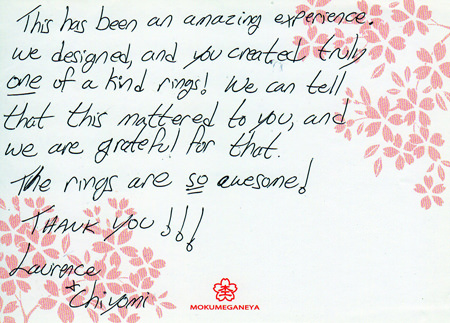 This has been an amazing experience.
We designed, and you created truly
one of a kind rings! We can tell
that this mattered to you, and
we are grateful for that.
The rings are so awesome!
THANK YOU!!!
Laurence
+ Chiyomi
MOKUMEGANEYA